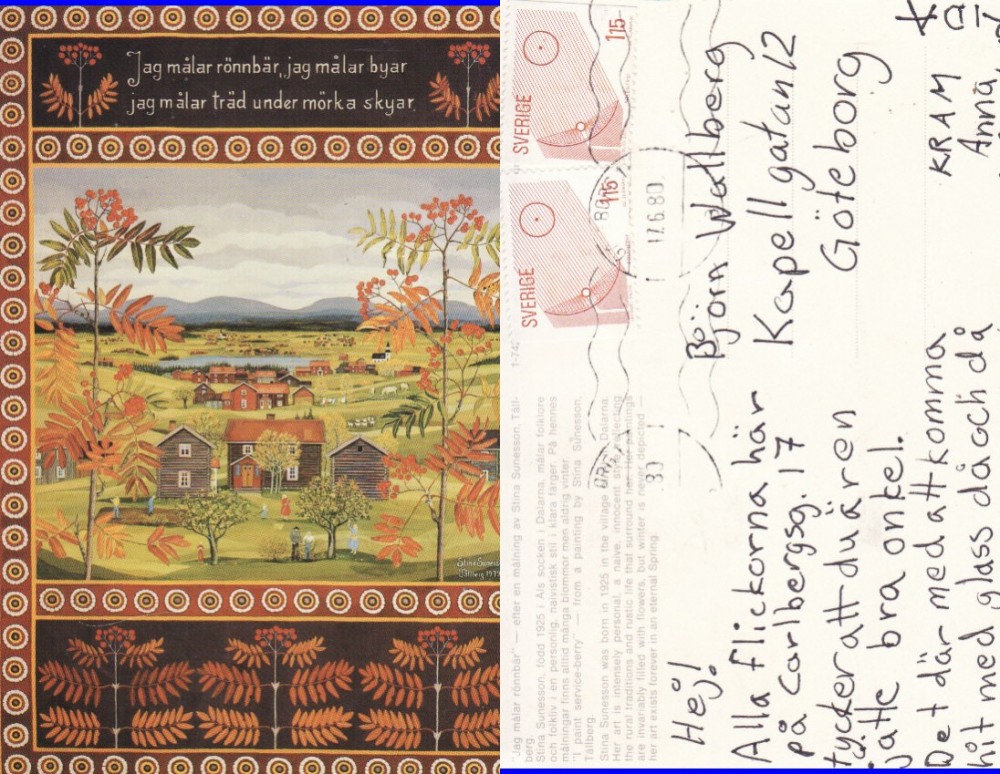 Jag målar rönnbär, jag målar byar
jag målar träd under mörka skyar.
Stina Sunesson
Tällberg 1979
SVERIGE
115
SVERIGE
115
17.6.80
80
Björn Wallberg
Kapellgatan 12
Göteborg
Hej!
Alla flickorna här
på Carlbergsg. 17
tycker att du är en
jätte bra onkel.
Det där med att komma
hit med glass då och då
KRAM
Anna,
"Jag målar rönnbär" — efter en målning av Stina Sunesson, Täll-
berg.
Stina Sunesson, född 1925 i Als socken i Dalarna, målar folklore
och folkliv i en personlig, naivistisk stil i klara färger. På hennes
målningar finns alltid många blommor men aldrig vinter.
"I paint service-berry" — from a painting by Stina Sunesson,
Tällberg.
Stina Sunesson was born in 1925 in the village in Dalarna.
Her art is intensely personal, a naive, innocent style, depicting
the rural traditions and rustic life that surround her. Her paintings
are invariably filled with flowers, but winter is never depicted —
her art exists forever in an eternal Spring.